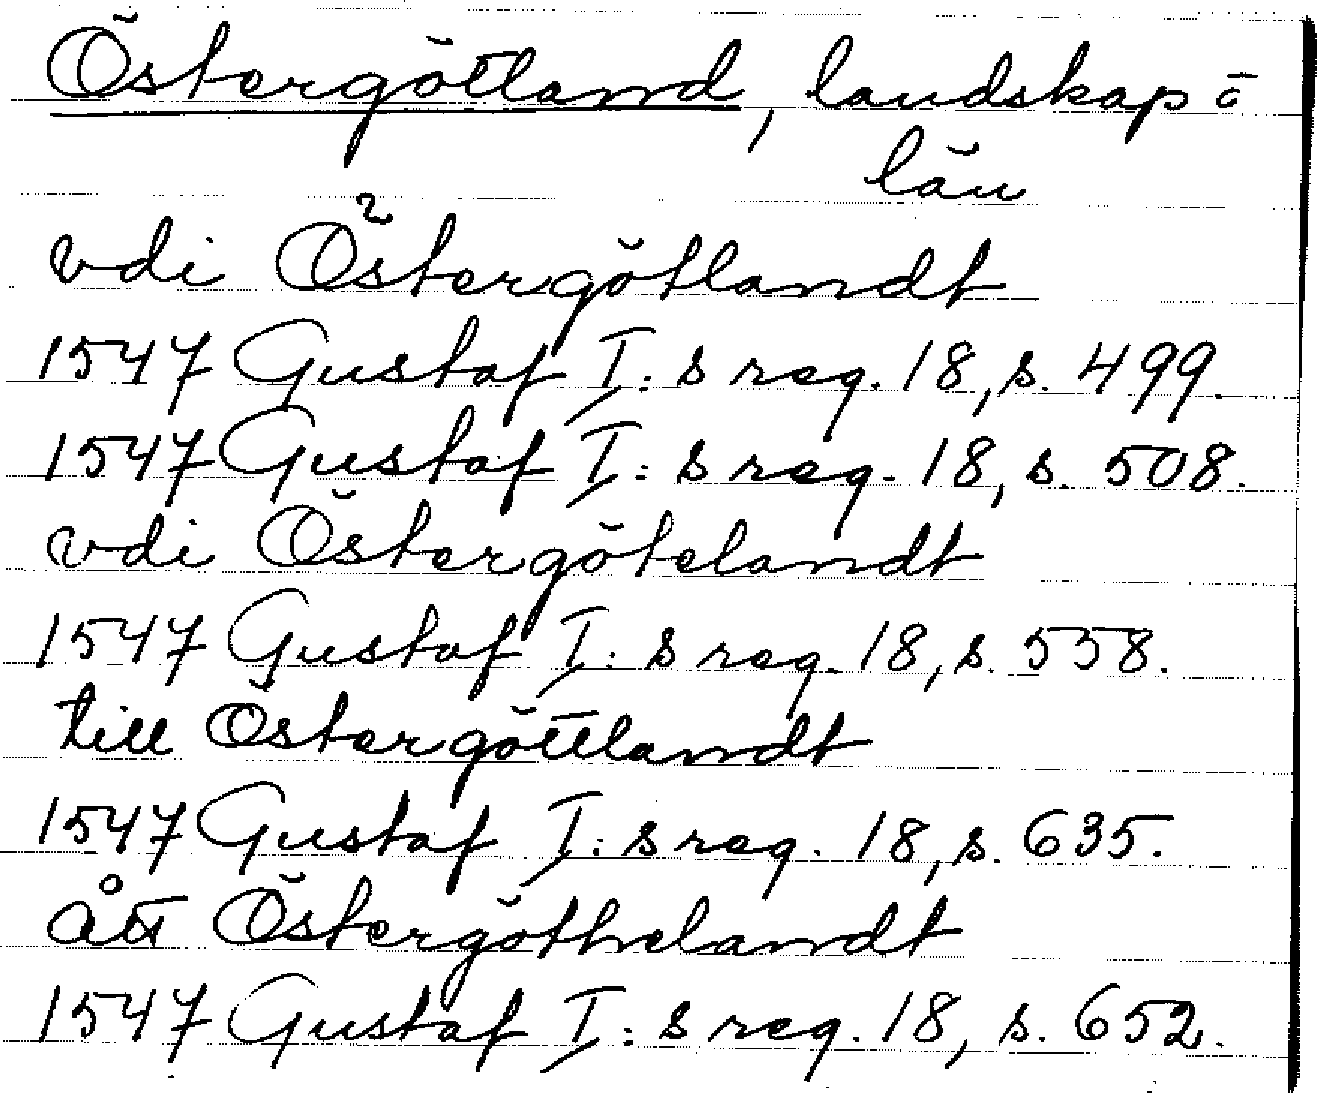 Östergötland, landskap o
län
vdi Östergötlandt
1547 Gustaf I:s reg. 18, s. 499.
1547 Gustaf I:s reg. 18, s. 508.
vdi Östergötelandt
1547 Gustaf I:s reg. 18, s. 558.
till Östergöttlandt
1547 Gustaf I:s reg. 18, s. 635.
ått Östergöthelandt
1547 Gustaf I:s reg. 18, s. 652.